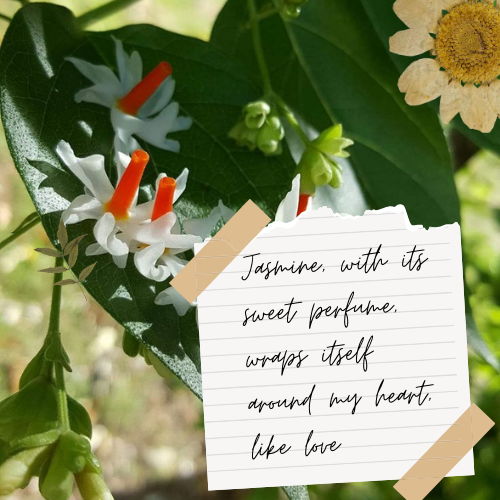 Jasmine, with its
sweet perfume,
wraps itself
around my heart,
like love